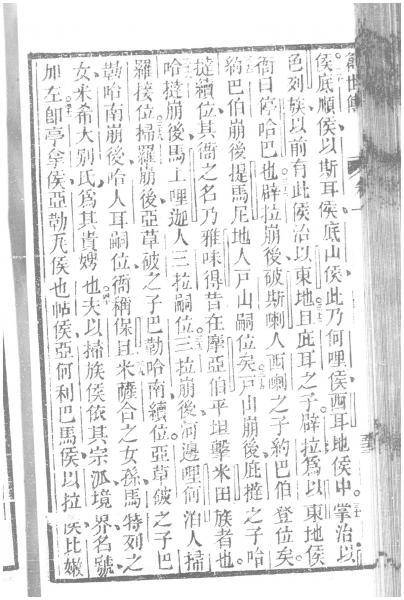 創世傳 卷一
侯底順侯以斯耳侯底山侯此乃何哩侯西耳地侯中掌治以
色列族以前有此侯治以東地且庇耳之子辟拉為以東地侯
衙曰停哈巴也辟拉崩後破斯喇人西喇之子約巴伯登位矣
約巴伯崩後提馬尼地人戶山嗣位矣戶山崩後庇撻之子哈
撻續位其衙之名乃雅味得昔在摩亞伯平坦擊米田族者也
哈撻崩後馬士哩迦人三拉嗣位三拉崩後河邊哩何泊人掃
羅接位掃羅崩後亞草破之子巴勒哈南續位亞草破之子巴
勒哈南崩後哈人耳嗣位衙稱保且米薩合之女孫馬特列之
女米希大别氏為其貴娉也夫以掃族侯依其宗派境界名號
加左即亭拿侯亞勒瓦侯也帖侯亞何利巴馬侯以拉侯比嫩